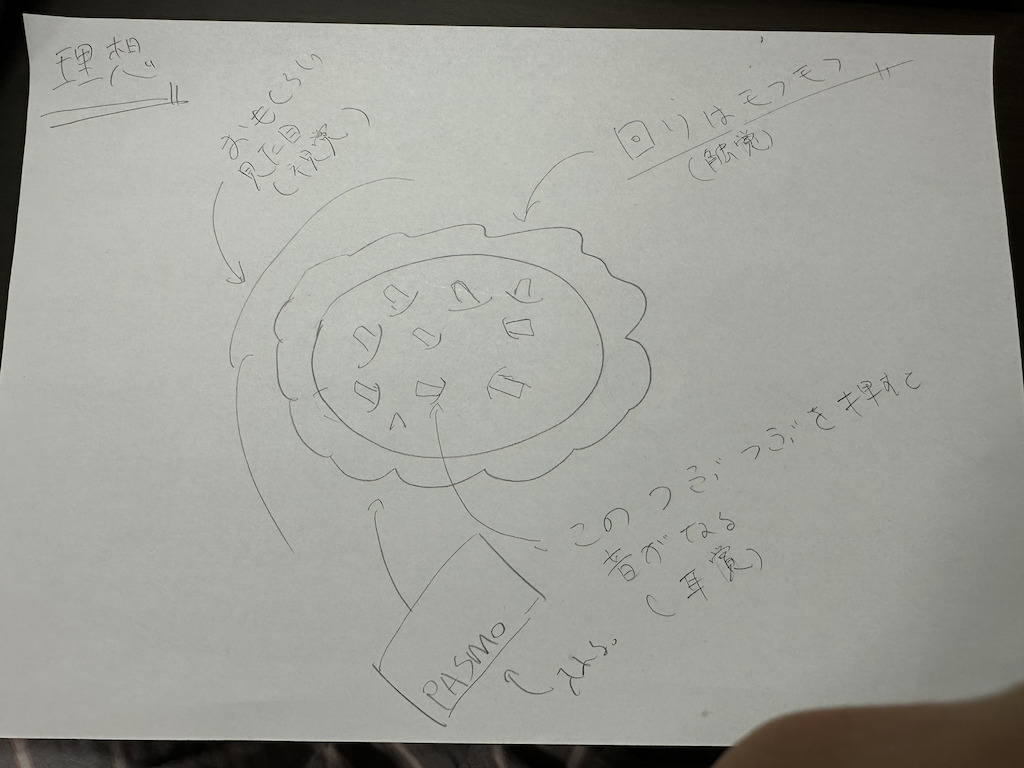 理想
おもしろい
見た目
(視覚)
回りはモフモフ
(触覚)
このつぶつぶを押すと
音がなる
(耳覚)
PASMO